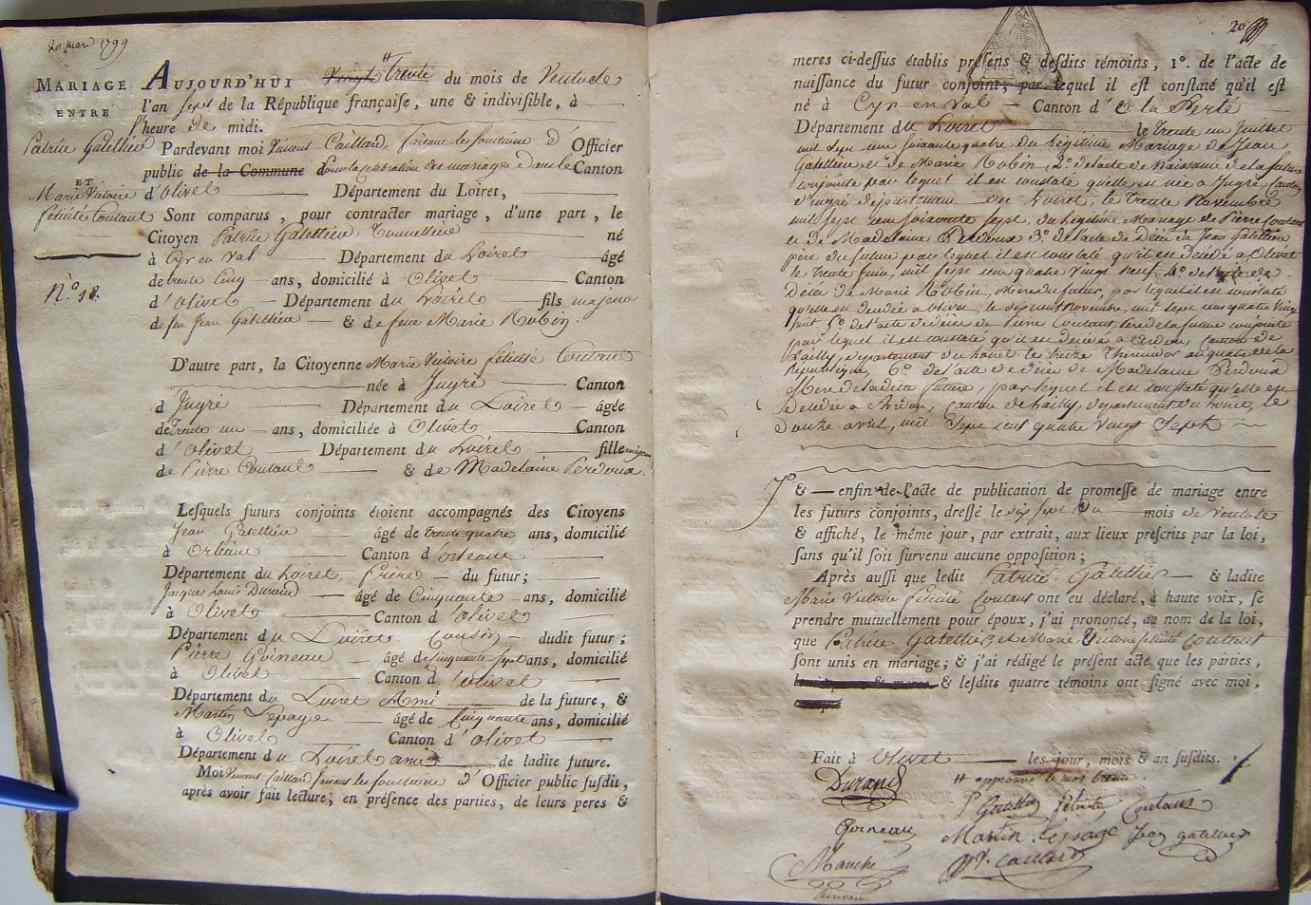 20 mars 1799
MARIAGE
ENTRE
Patrice Gatellier
ET
Marie Victoire
félicité Coutant
N.° 18.
AUJOURD'HUI Vingt # Trente du mois de Ventose
l'an sept de la République française, une & indivisible, à
l'heure de midi.
Pardevant moi Vincent Caillard, d' Officier
public de la Commune pour la célébration des mariages dans le Canton
d'Olivet Département du Loiret,
Sont comparus, pour contracter mariage, d'une part, le
Citoyen Patrice Gatellier Tonnellier né
à Cyr en Val Département du Loiret âgé
de trente cinq ans, domicilié à Olivet Canton
d'Olivet Département du Loiret fils majeur
de feu Jean Gatellier & de feue Marie Robin.
D'autre part, la Citoyenne Marie Victoire félicité Coutant
née à Ingré Canton
d Ingré Département du Loiret âgée
de Trente un ans, domiciliée à Olivet Canton
d'Olivet Département du Loiret fille majeure
de Pierre Coutant & de Madelaine Perdoux
Lesquels futurs conjoints étoient accompagnés des Citoyens
Jean Gatellier âgé de trente quatre ans, domicilié
à Orléans Canton d'orleans
Département du Loiret, frère du futur;
Jacques Louis Durand âgé de Cinquante ans, domicilié
à Olivet Canton d'olivet
Département du Loiret Cousin dudit futur;
Pierre Goineau âgé de cinquante sept ans, domicilié
à Olivet Canton d'olivet
Département du Loiret Ami de la future, &
Martin Lepage âgé de Cinquante ans, domicilié
à Olivet Canton d'olivet
Département du Loiret ami de ladite future.
Moi Vincent Caillard d' Officier public susdit,
après avoir fait lecture; en présence des parties, de leurs peres &
20
meres ci-dessus établis présens & desdits témoins, 1°. de l'acte de
naissance du futur conjoint; par lequel il est constaté qu'il est
né à Cyr en Val Canton d' & la ferté
Département du Loiret le trente un Juillet
mil sept cent soixante quatre du légitime Mariage de Jean
Gatellier et de Marie Robin, 2°. de l'acte de Naissance de la future
conjointe par lequel il est constaté quelle est née à Ingré, Canton
d'ingré département du Loiret, le trente Novembre
mil sept cent soixante sept, du légitime Mariage de Pierre Coutant
et de Madelaine Perdoux 3°. de l'acte de Décès de Jean Gatellier
père du futur par lequel il est constaté qu'il est décédé a Olivet
le trente juin, mil sept cent quatre vingt neuf, 4°. de l'acte de
Décès de Marie Robin, mère du futur, par lequel il est constaté
qu'elle est décédée a olivet le sept novembre, mil sept cent quatre vingt
huit 5°. de l'acte de décès de Pierre Coutant, père de la future conjointe
par lequel il est constaté qu'il est décédé a Ardon, canton de
Lailly, département du Loiret le treize Thermidor an quatre de la
République, 6°. de l'acte de décès de Madelaine Perdoux
Mère de ladite future, par lequel il est constaté qu'elle est
Décédée a Ardon, canton de Lailly, département du Loiret, le
Douze avril, mil sept cent quatre vingt sept
& enfin de l'acte de publication de promesse de mariage entre
les futurs conjoints, dressé le vingt sept du mois de ventose
& affiché, le même jour, par extrait, aux lieux prescrits par la loi,
sans qu'il soit survenu aucune opposition;
Après aussi que ledit Patrice Gatellier & ladite
Marie Victoire félicité Coutant ont eu déclaré, à haute voix, se
prendre mutuellement pour époux, j'ai prononcé, au nom de la loi,
que Patrice Gatellier et Marie Victoire félicité Coutant
sont unis en mariage; & j'ai rédigé le présent acte que les parties,
& lesdits quatre témoins ont signé avec moi,
Fait à Olivet les jour, mois & an susdits.
# approuvé le mot trente.
Durand
P. Gatellier félicité Coutant
Goineau Martin Lepage Jean gatellier
V. Caillard